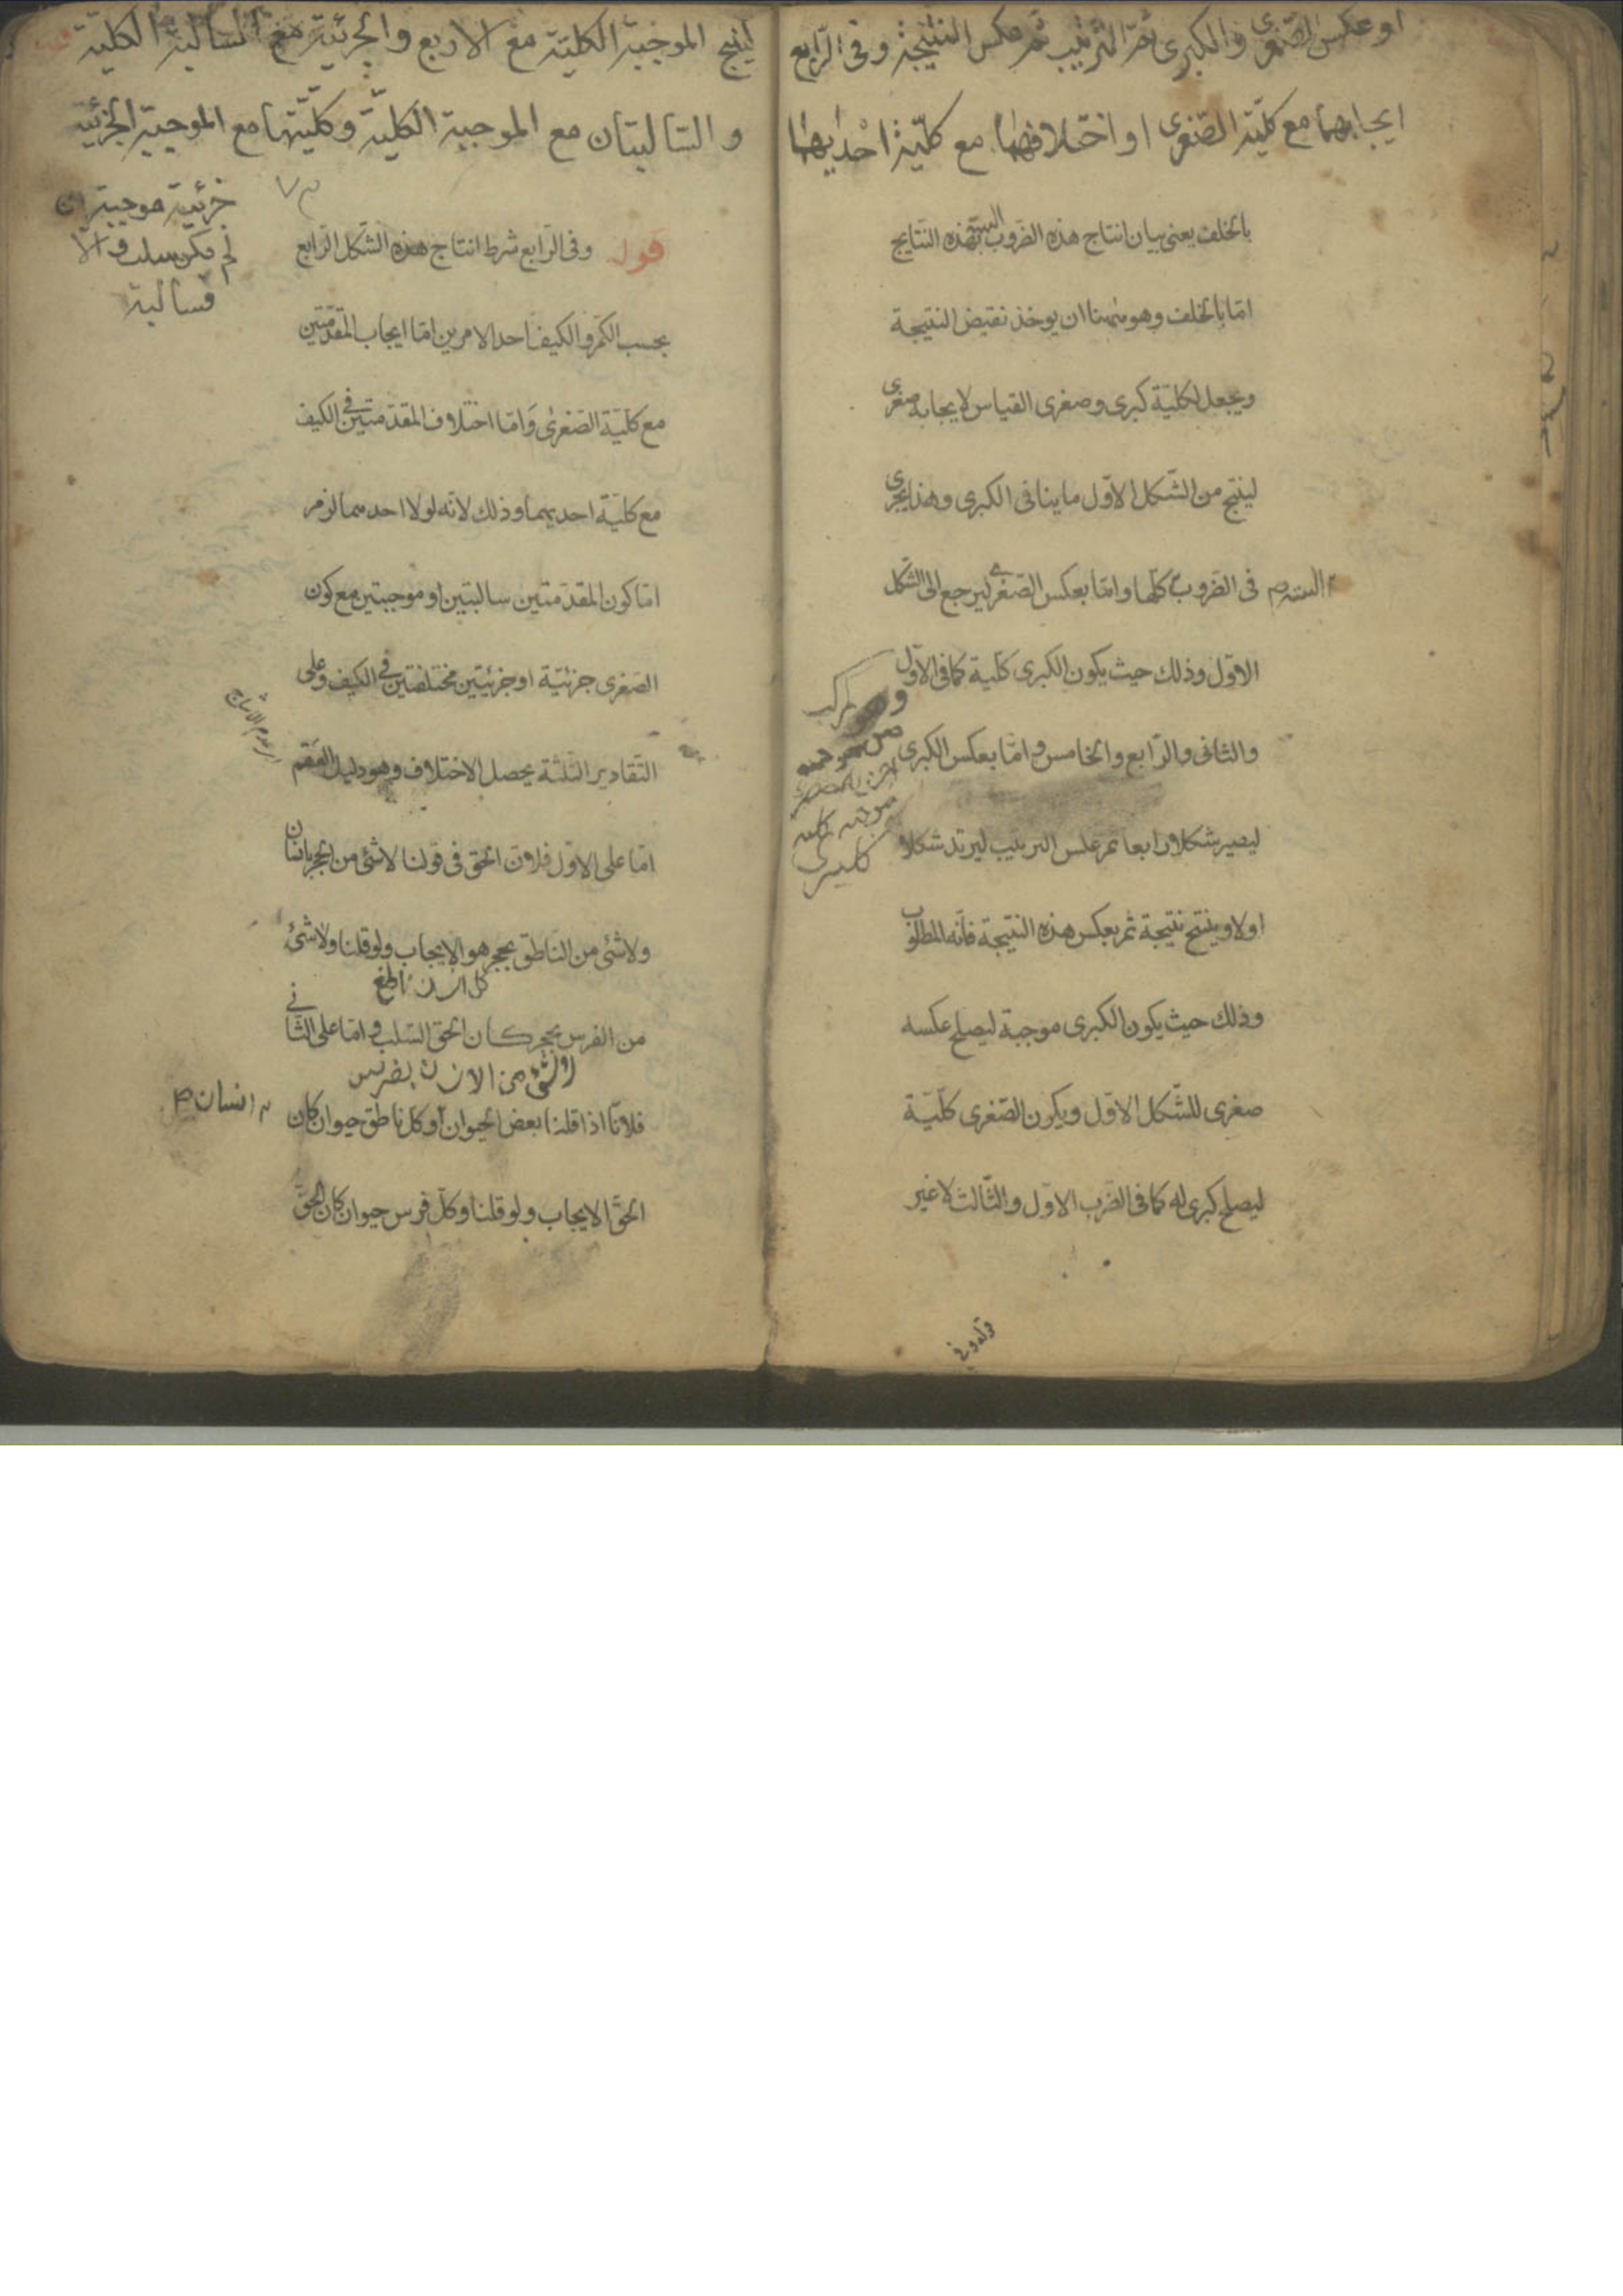 او عكس الصّغرى والكبرى ثمّ الترتيب ثم عكس النتيجة وفى الرّابع
ايجابهما مع كلّيّة الصّغرى او اختلافهما مع كلّيّة احديهما
بالخلف يعنى بيان انتاج هذه الضروب الستة بهذه النتايج
امّا بالخلف وهو ههنا ان يوخذ نقيض النتيجة
ويجعل لكليّة كبرى وصغرى القياس لايجابه صغرى
لينتج من الشّكل الاوّل ما ينافى الكبرى وهذا يجرى
الستة فى الضّروب كلّها وامّا بعكس الصّغرى ليرجع الى الشّكل
الاوّل وذلك حيث يكون الكبرى كليّة كما فى الاوّل
والثانى والرّابع والخامس وامّا بعكس الكبرى
ليصير شكلا رابعا ثم عكس الترتيب ليرتد شكلا
اولا وينتج نتيجة ثم يعكس هذه النتيجة فانّه المطلوب
وذلك حيث يكون الكبرى موجبة ليصلح عكسه
صغرى للشّكل الاوّل ويكون الصّغرى كلّيّة
ليصلح كبرى له كما فى الضّرب الاوّل والثّالث لا غير
موجبة كلية
كبرى
لينتج الموجبة الكليّة مع الاربع والجزئيّة مع السّالبة الكليّة
والسّالبتان مع الموجبة الكليّة وكلّيّتها مع الموجبة الجزئيّة
جزئيّة موجبة ان
لم يكن سلب والّا
فسالبة
قوله وفى الرّابع شرط انتاج هذه الشّكل الرّابع
بحسب الكمّ والكيف احد الامرين امّا ايجاب المقدّمتين
مع كلّيّة الصّغرى وامّا اختلاف المقدّمتين فى الكيف
مع كلّيّة احديهما وذلك لانّه لولا احدهما لزم
امّا كون المقدّمتين سالبتين او موجبتين مع كون
الصّغرى جزئيّة او جزئيتين مختلفتين فى الكيف وعلى
التّقادير الثّلثة يحصل الاختلاف وهو دليل العقم
امّا على الاوّل فلانّ الحق فى قولنا لا شئ من الحجر بانسان
ولا شئ من النّاطق بحجر هو الايجاب ولو قلنا ولا شئ
من الفرس بحجر كان الحق السّلب وامّا على الثّانى
فلانّا اذا قلنا بعض الحيوان انسان وكل ناطق حيوان كان
الحقّ الايجاب ولو قلنا وكلّ فرس حيوان كان الحقّ